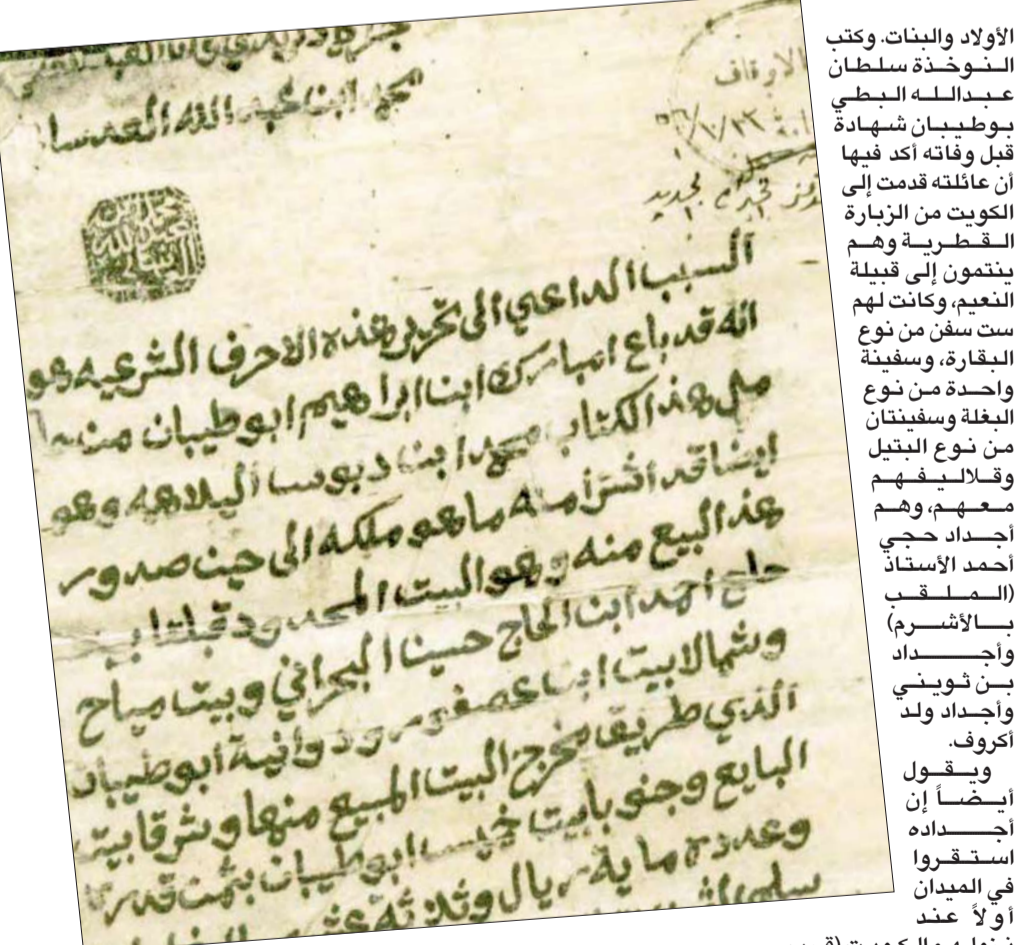 الأولاد والبنات. وكتب
النوخذة سلطان
عبدالله البطي
بوطيبان شهادة
قبل وفاته أكد فيها
أن عائلته قدمت إلى
الكويت من الزبارة
القطرية وهم
ينتمون إلى قبيلة
النعيم، وكانت لهم
ست سفن من نوع
البقارة، وسفينة
واحدة من نوع
البغلة وسفينتان
من نوع البتيل
وقلاليفهم
معهم، وهم
أجداد حجي
أحمد الأستاذ
(الملقب
بالأشرم)
وأجداد
بن ثويني
وأجداد ولد
أكروف.
ويقول
أيضاً إن
أجداده
استقروا
في الميدان
أولاً عند
محمد ابن عبد الله العدسا
الاوقاف
السبب الداعي الى تحرير هذه الاحرف الشرعيه هو
انه قد باع امبارك ابن ابراهيم ابوطيبان من
هذ الكتاب محمد ابن دبوس وهو
ايضا قد اشترا منه ما هو ملكه الى حين صدور
هذ البيع منه وهو البيت المحدود قبلتا
حاج احمد ابن الحاج حسين البحراني وبيت مياح
وشمالا بيت ابن عصفور ودوانية ابوطيبان
الذي طريق مخرج البيت المبيع منها وشرقا بيت
البايع وجنوبا بيت خميس ابوطيبان بثمن قدره
وعدده ماية ريال وثلاثة